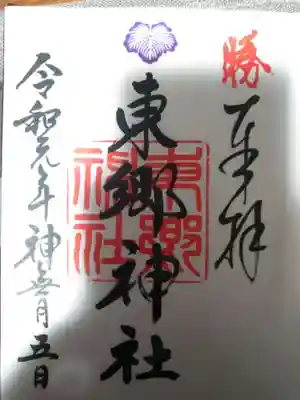 勝
奉拝
東郷神社
東郷神社
令和元年神無月五日